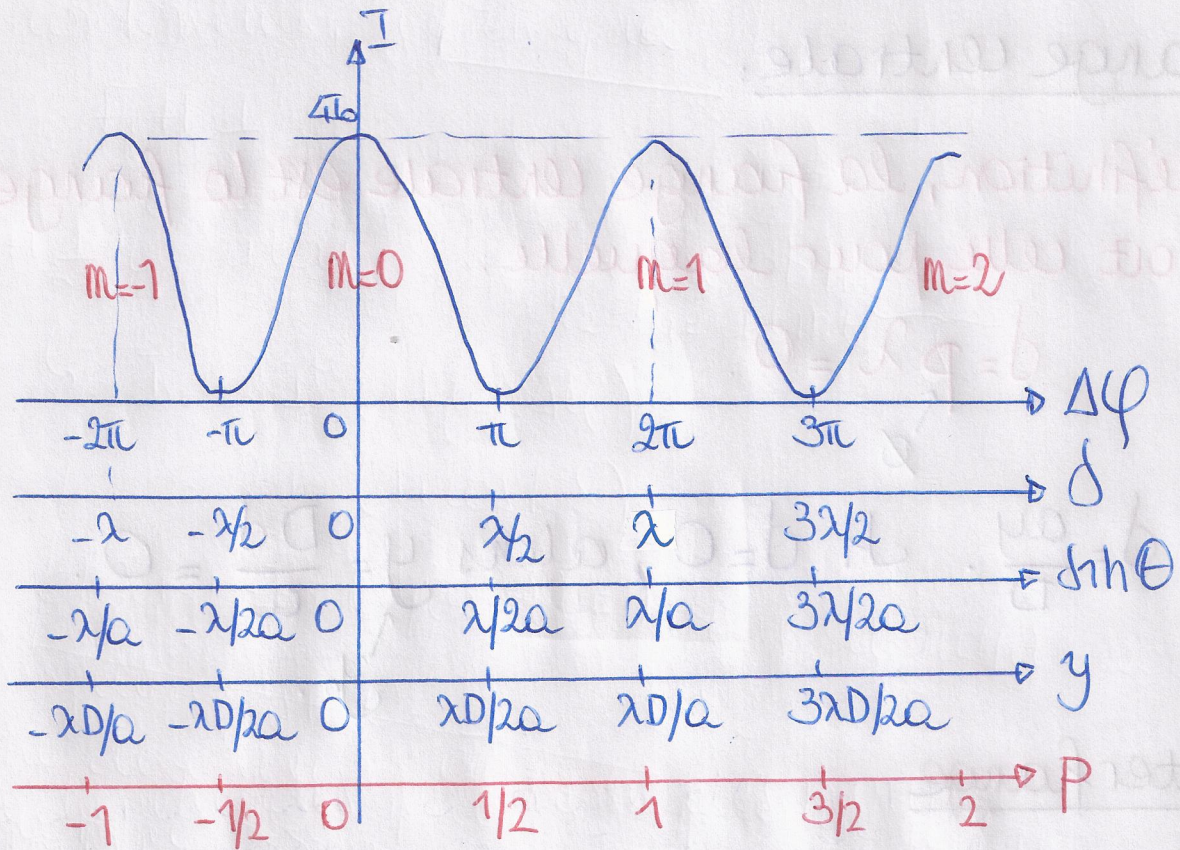 I
4I₀
m=-1 m=0 m=1 m=2
-2π -π 0 π 2π 3π Δφ
-λ -λ/2 0 λ/2 λ 3λ/2 δ
-λ/a -λ/2a 0 λ/2a λ/a 3λ/2a sinθ
-λD/a -λD/2a 0 λD/2a λD/a 3λD/2a y
-1 -1/2 0 1/2 1 3/2 2 p